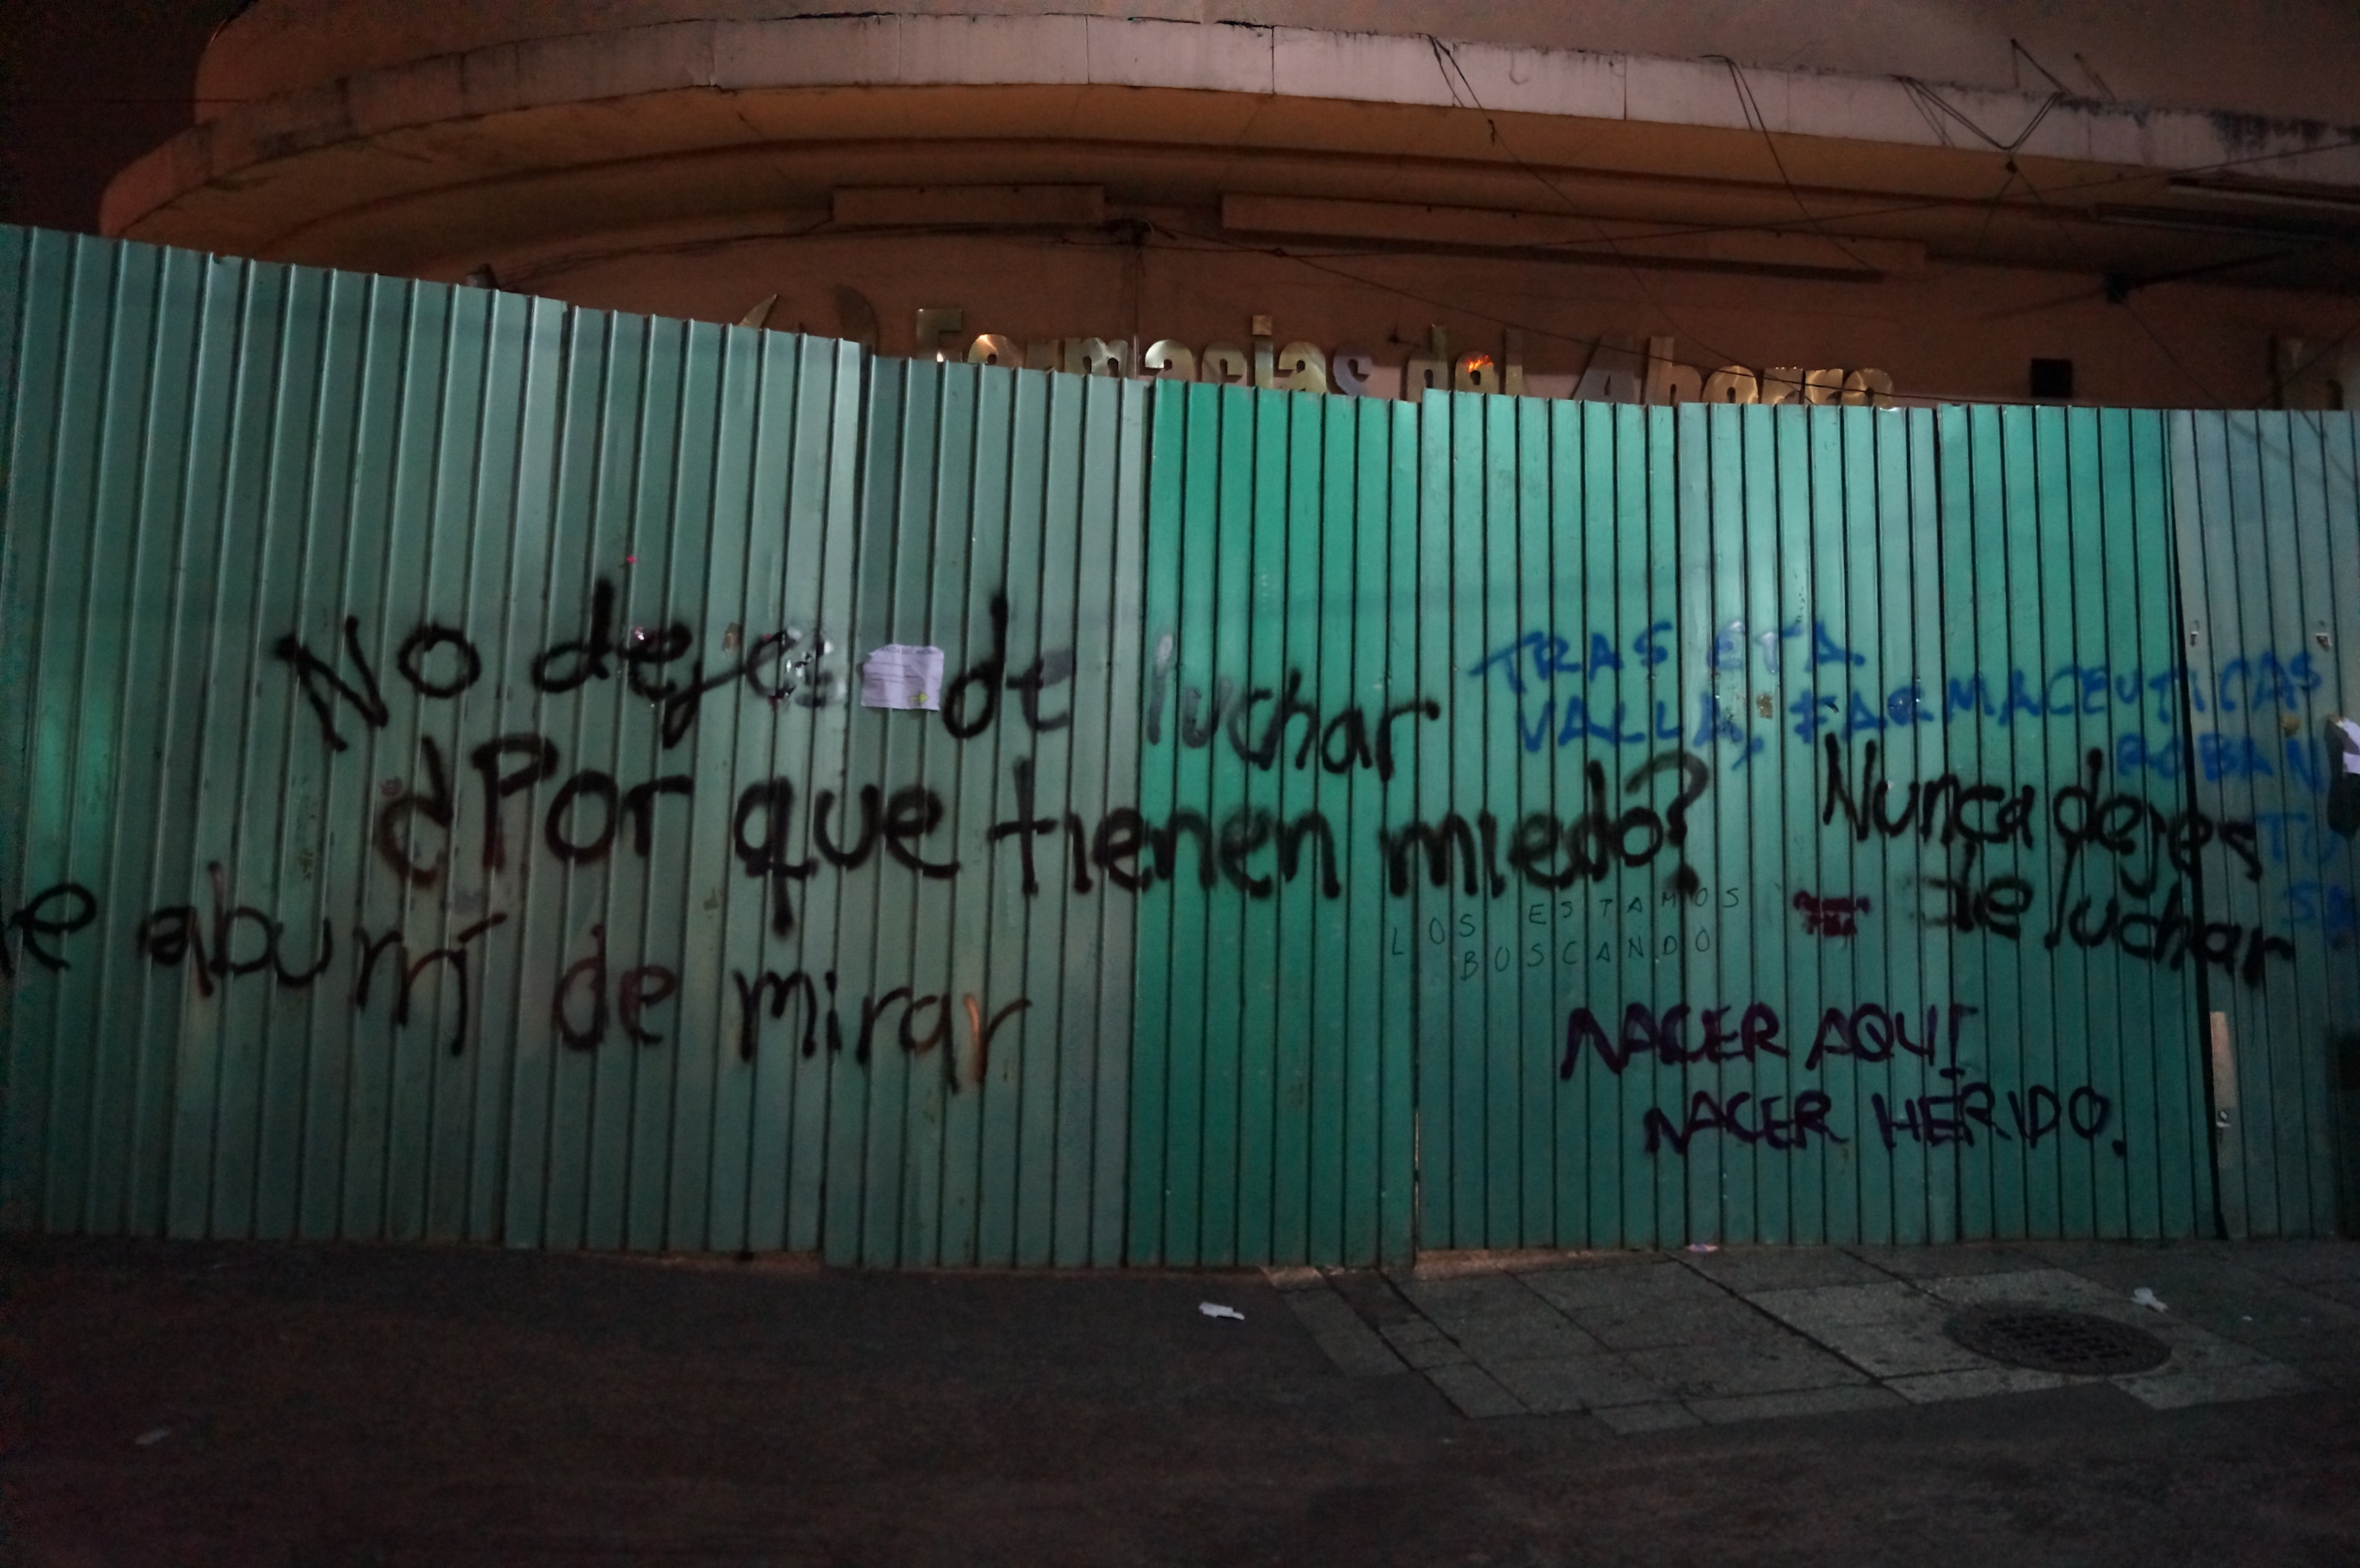 Farmacias del Ahorro
No dejes de luchar
¿Por que tienen miedo?
e aburrí de mirar
TRAS ETA
VALLA, FARMACEUTICAS
ROBAN
TU
Nunca dejes
de luchar
LOS ESTAMOS
BUSCANDO
NACER AQUÍ
NACER HERIDO.